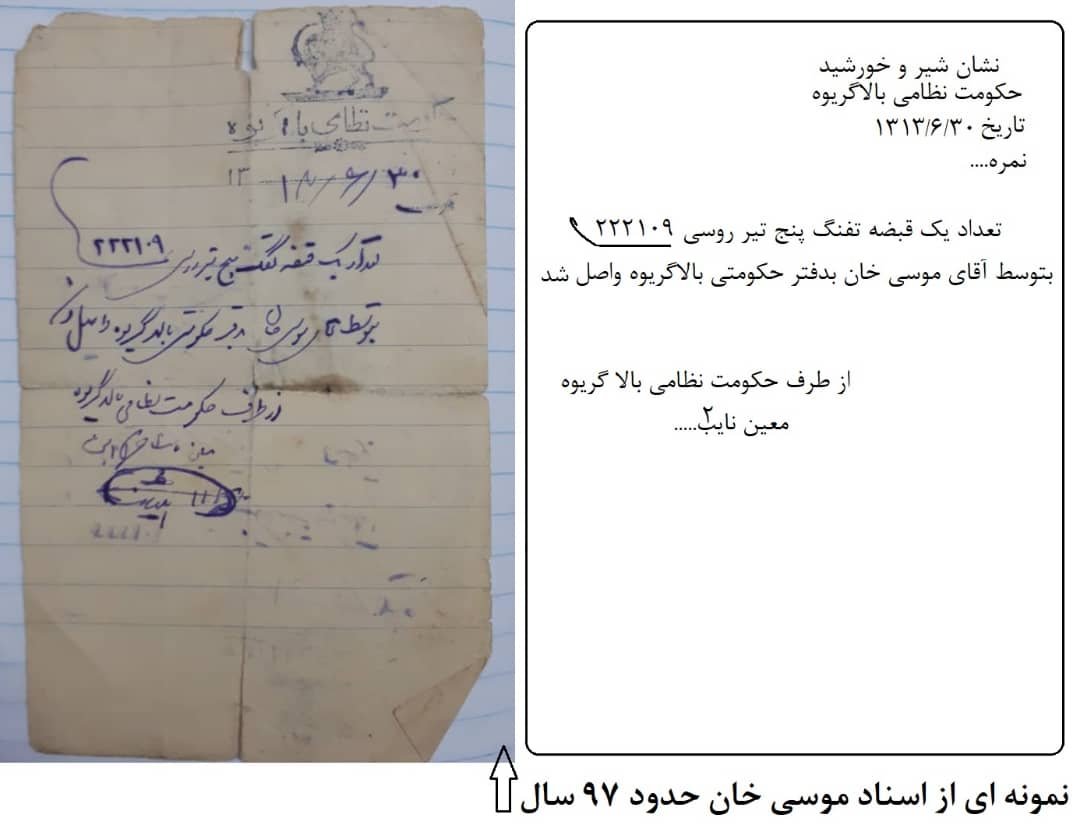 حکومت نظامی بالاگریوه
۱۳۱۳/۶/۳۰
نمره
تعداد یک قبضه تفنگ پنج تیر روسی ۲۲۲۱۰۹
بتوسط آقای موسی خان بدفتر حکومتی بالاگریوه واصل شد
از طرف حکومت نظامی بالاگریوه
نشان شیر و خورشید
حکومت نظامی بالاگریوه
تاریخ ۱۳۱۳/۶/۳۰
نمره....
تعداد یک قبضه تفنگ پنج تیر روسی ۲۲۲۱۰۹
بتوسط آقای موسی خان بدفتر حکومتی بالاگریوه واصل شد
از طرف حکومت نظامی بالا گریوه
معین نایب۲.....
نمونه ای از اسناد موسی خان حدود ۹۷ سال